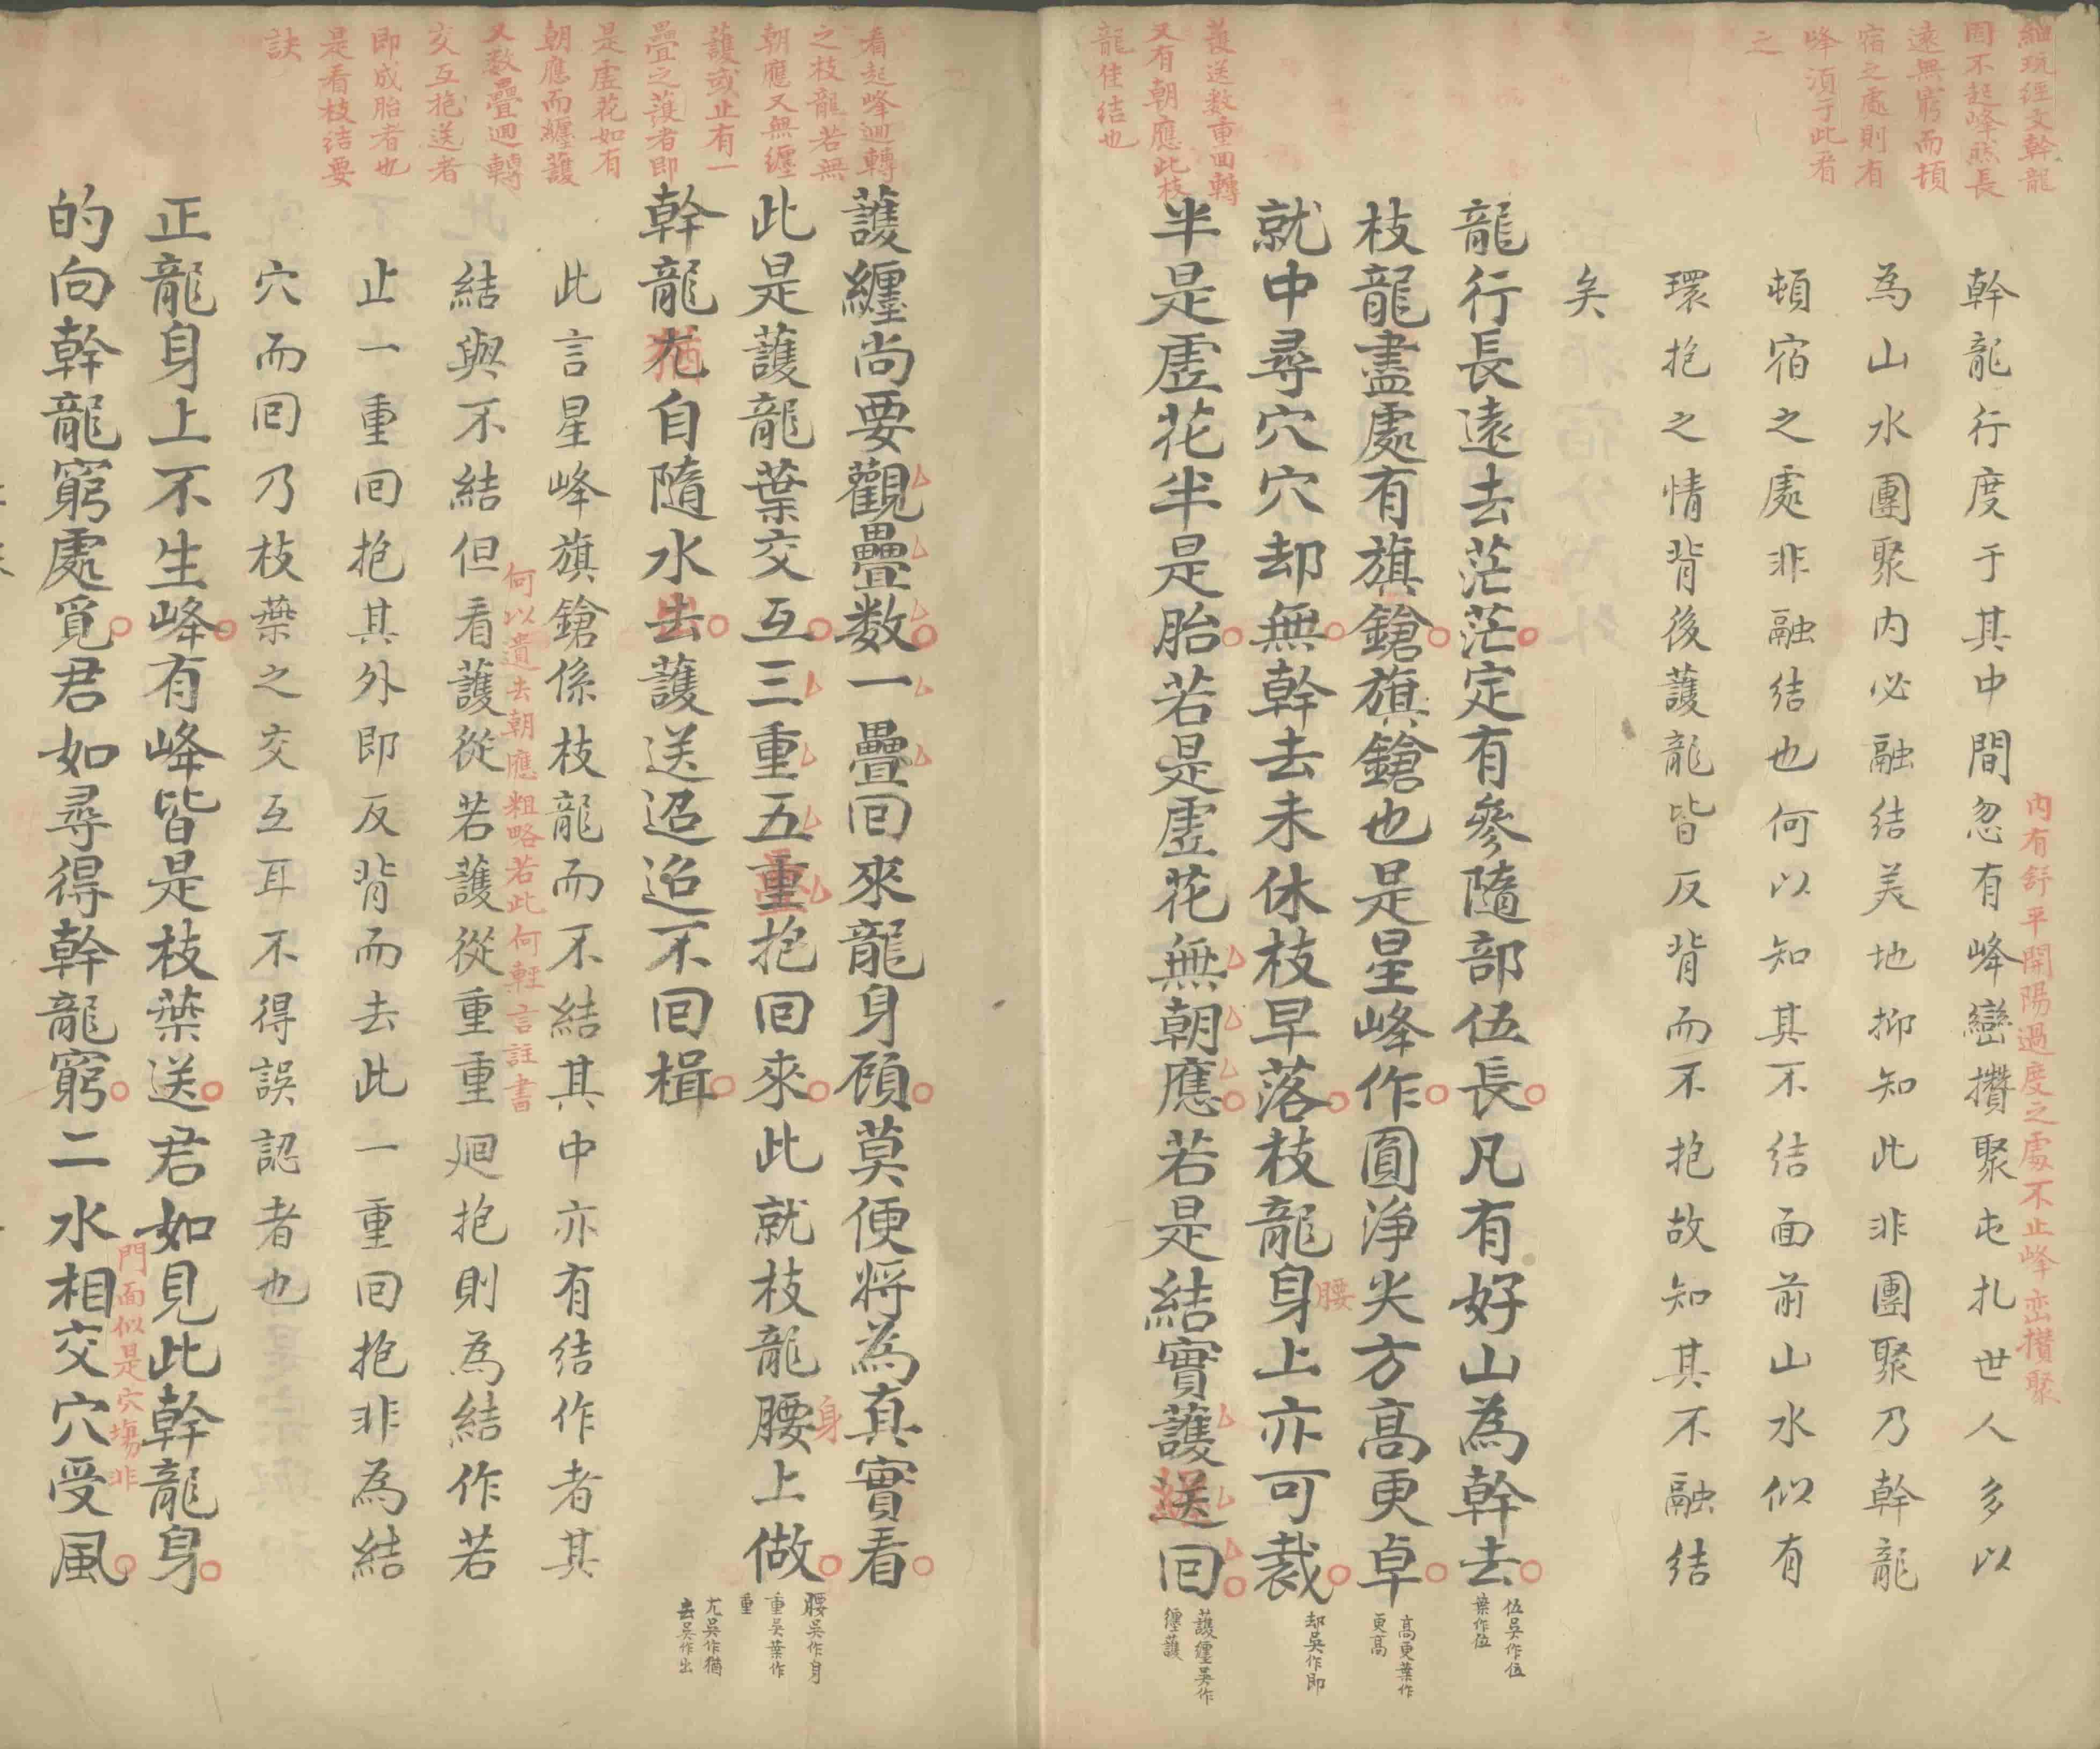 細玩經文幹龍
因不起峰然長
遠無窮而頓
宿之處則有
峰須于此看
之
幹龍行度于其中間忽有峰巒攢聚屯扎世人多以
內有舒平開陽過度之處不止峰峦攢聚
為山水團聚內必融結美地抑知此非團聚乃幹龍
頓宿之處非融結也何以知其不結面前山水似有
環抱之情背後護龍皆反背而不抱故知其不融結
矣
龍行長遠去茫茫定有參隨部伍長凡有好山為幹去
枝龍盡處有旗鎗旗鎗也是星峰作圓淨尖方高更卓
就中尋穴穴却無幹去未休枝早落枝龍身上亦可裁
腰
半是虛花半是胎若是虛花無朝應若是結實護送回
護送数重回轉
又有朝應此枝
龍佳結也
伍吳作位
葉作位
高更葉作
更高
却吳作即
護纏吳作
纏護
看起峰迴轉
之枝龍若無
朝應又無纏
護或止有一
疊之護者即
是虛花如有
朝應而纏護
又数疊迴轉
交互抱送者
即成胎者也
是看枝結要
訣
護纏尚要觀疊数一疊回來龍身顧莫便將為真實看
此是護龍葉交互三重五重抱回來此就枝龍腰上做
身
幹龍尤自隨水去護送迢迢不回楫
猶
此言星峰旗鎗係枝龍而不結其中亦有結作者其
結與不結但看護從若護從重重廻抱則為結作若
何以遺去朝應粗略若此何輕言註書
止一重回抱其外即反背而去此一重回抱非為結
穴而回乃枝葉之交互耳不得誤認者也
正龍身上不生峰有峰皆是枝葉送君如見此幹龍身
的向幹龍窮處覓君如尋得幹龍窮二水相交穴受風
門面似是穴塲非
腰吳作身
重吳葉作
重
尤吳作猶
去吳作出